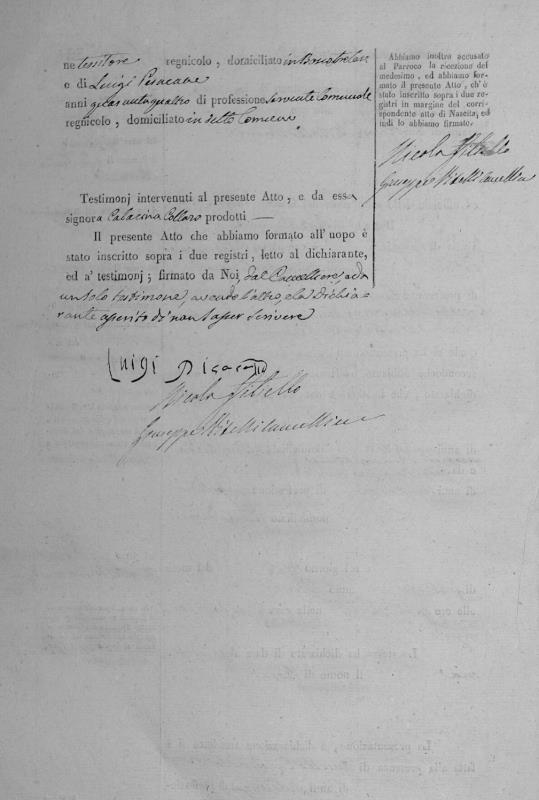 ne tessitore regnicolo, domiciliato in
e di Luigi Pisacane
anni quarantaquattro di professione Servente Comunale
regnicolo, domiciliato in detto Comune
Testimonj intervenuti al presente Atto, e da essa
signora Collaro prodotti —
Il presente Atto che abbiamo formato all' uopo è
stato inscritto sopra i due registri, letto al dichiarante,
ed a' testimonj; firmato da Noi, dal Cancelliere, ad
un solo testimone, avendo l'altro, e la Dichia-
rante asserito di non saper scrivere
Luigi Pisacano
Nicola
Giuseppe
Abbiamo inoltre accusato
al Parroco la ricezione del
medesimo, ed abbiamo for-
mato il presente Atto, ch'è
stato inscritto sopra i due re-
gistri in margine del corri-
spondente atto di Nascita, ed
indi lo abbiamo firmato.
Nicola
Giuseppe